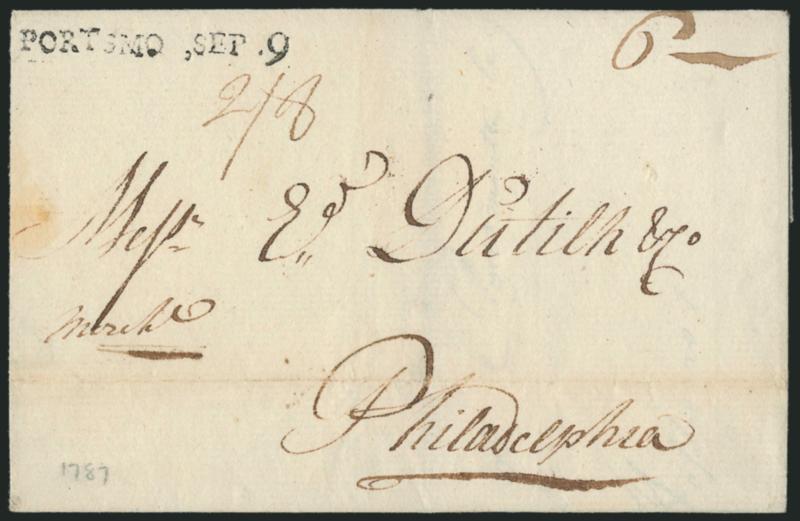 PORTSMO ,SEP .9
6
2/8
Messrs Ed. Dutilh & Co
Merchts
Philadelphia
1787